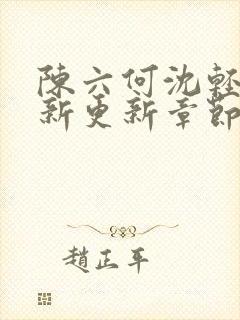 陳六何沈輕
新更新章節
趙正平